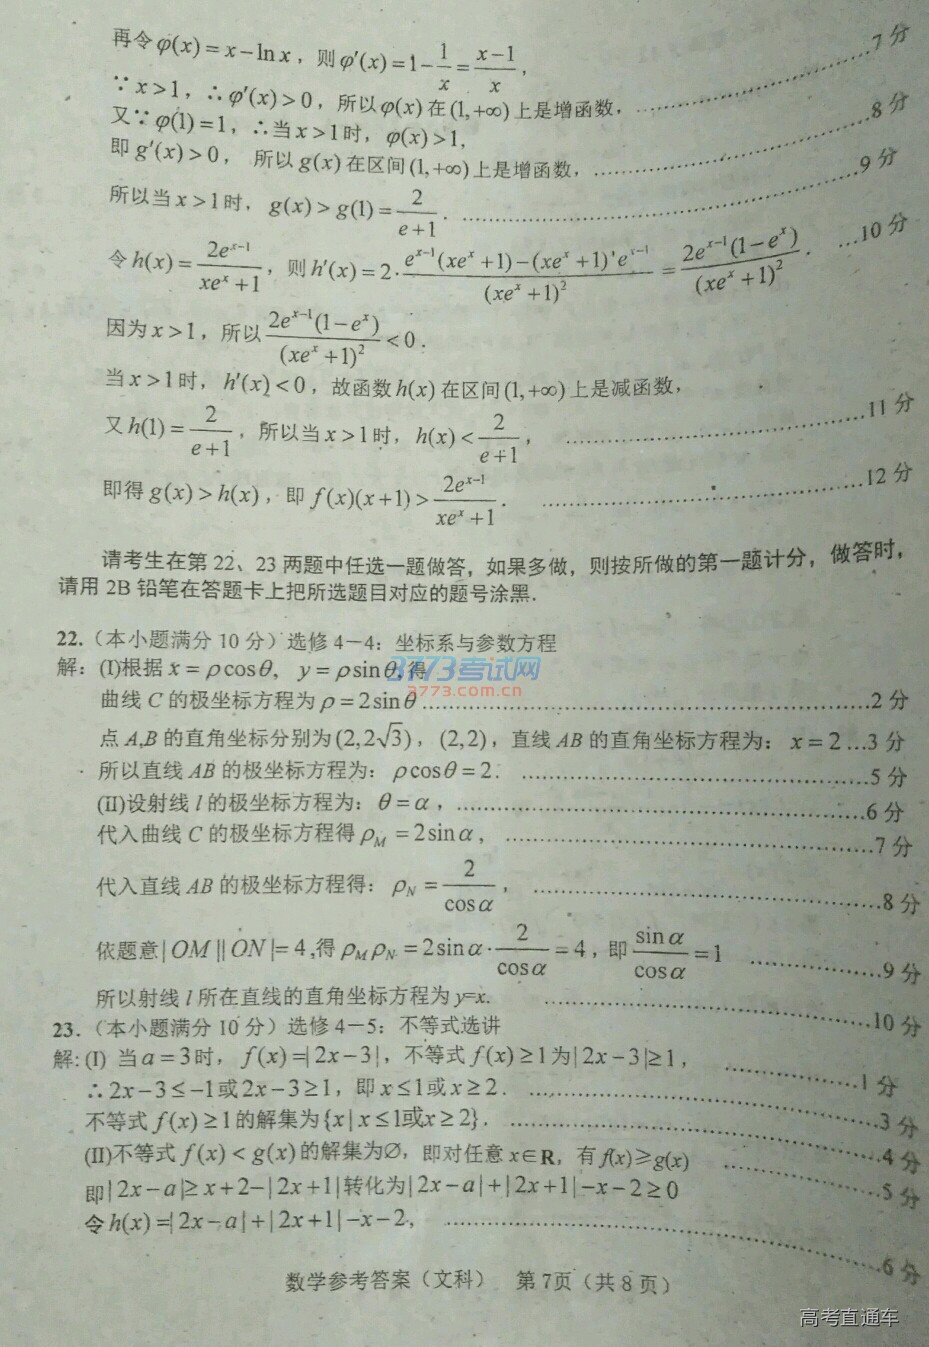 再令φ(x)=x-ln x，则φ'(x)=1-1/x=(x-1)/x，……7分
∵x>1，∴φ'(x)>0，所以φ(x)在(1,+∞)上是增函数，……8分
又∵φ(1)=1，∴当x>1时，φ(x)>1，
即g'(x)>0，所以g(x)在区间(1,+∞)上是增函数，……9分
所以当x>1时，g(x)>g(1)=2/(e+1)．……10分
令h(x)=2e^(x-1)/(xe^x+1)，则h'(x)=2·[e^(x-1)(xe^x+1)-(xe^x+1)'e^(x-1)]/(xe^x+1)²=2e^(x-1)(1-e^x)/(xe^x+1)²．
因为x>1，所以2e^(x-1)(1-e^x)/(xe^x+1)²<0．
当x>1时，h'(x)<0，故函数h(x)在区间(1,+∞)上是减函数，
又h(1)=2/(e+1)，所以当x>1时，h(x)<2/(e+1)，……11分
即得g(x)>h(x)，即f(x)(x+1)>2e^(x-1)/(xe^x+1)．……12分
请考生在第22、23两题中任选一题做答，如果多做，则按所做的第一题计分，做答时，
请用2B铅笔在答题卡上把所选题目对应的题号涂黑.
22.（本小题满分10分）选修4－4：坐标系与参数方程
解：(I)根据x=ρcosθ，y=ρsinθ,得
3773考试网
3773.com.cn
曲线C的极坐标方程为ρ=2sinθ……2分
点A,B的直角坐标分别为(2,2√3)，(2,2)，直线AB的直角坐标方程为：x=2…3分
所以直线AB的极坐标方程为：ρcosθ=2．……5分
(II)设射线l的极坐标方程为：θ=α，……6分
代入曲线C的极坐标方程得ρ_M=2sinα，……7分
代入直线AB的极坐标方程得：ρ_N=2/cosα，……8分
依题意|OM||ON|=4,得ρ_Mρ_N=2sinα·2/cosα=4，即sinα/cosα=1……9分
所以射线l所在直线的直角坐标方程为y=x.……10分
23.（本小题满分10分）选修4－5：不等式选讲
解:(I)当a=3时，f(x)=|2x-3|，不等式f(x)≥1为|2x-3|≥1，……1分
∴2x-3≤-1或2x-3≥1，即x≤1或x≥2．……3分
不等式f(x)≥1的解集为{x|x≤1或x≥2}．……4分
(II)不等式f(x)<g(x)的解集为∅，即对任意x∈R，有f(x)≥g(x)……5分
即|2x-a|≥x+2-|2x+1|转化为|2x-a|+|2x+1|-x-2≥0
令h(x)=|2x-a|+|2x+1|-x-2，……6分
数学参考答案（文科） 第7页（共8页）
高考直通车